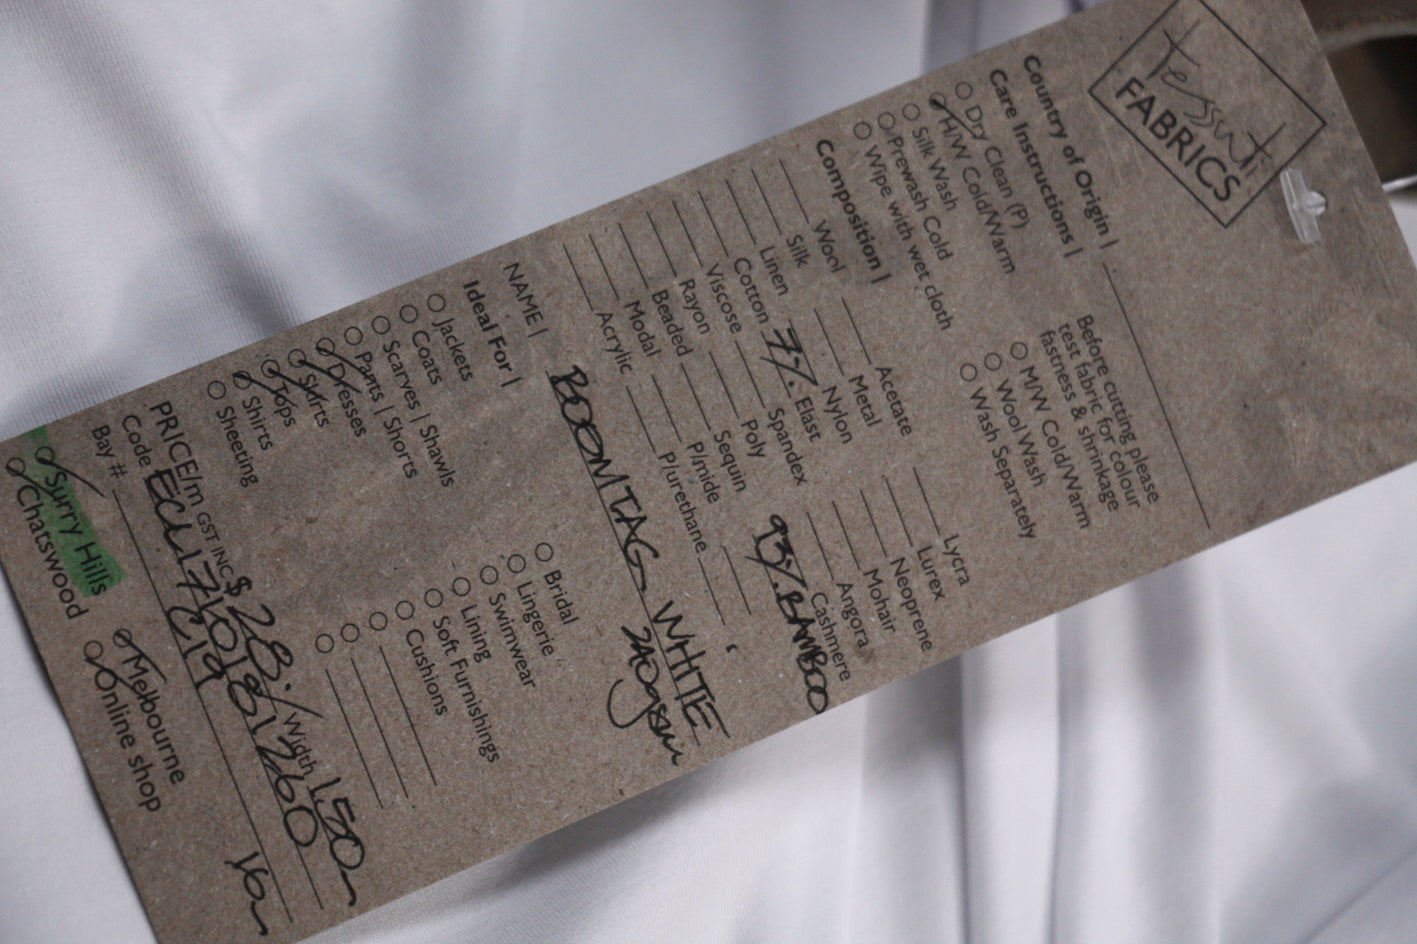 tessuti
FABRICS
Country of Origin |
Care Instructions |
Before cutting please
test fabric for colour
fastness & shrinkage
Dry Clean (P)
H/W Cold/Warm
Silk Wash
Prewash Cold
Wipe with wet cloth
M/W Cold/Warm
Wool Wash
Wash Separately
Composition |
Wool
Silk
Linen
Cotton
Viscose
Rayon
Beaded
Modal
Acrylic
Acetate
Metal
Nylon
7% Elast
Spandex
Poly
Sequin
P/mide
P/urethane
Lycra
Lurex
Neoprene
Mohair
Angora
Cashmere
93% BAMBOO
NAME | BOOMTAG WHITE
240gsm
Ideal For |
Jackets
Coats
Scarves | Shawls
Pants | Shorts
Dresses
Skirts
Tops
Shirts
Sheeting
Bridal
Lingerie
Swimwear
Lining
Soft Furnishings
Cushions
PRICE/m GST INC $28. Width 150
Code
Bay # C19
Surry Hills
Chatswood
Melbourne
Online shop